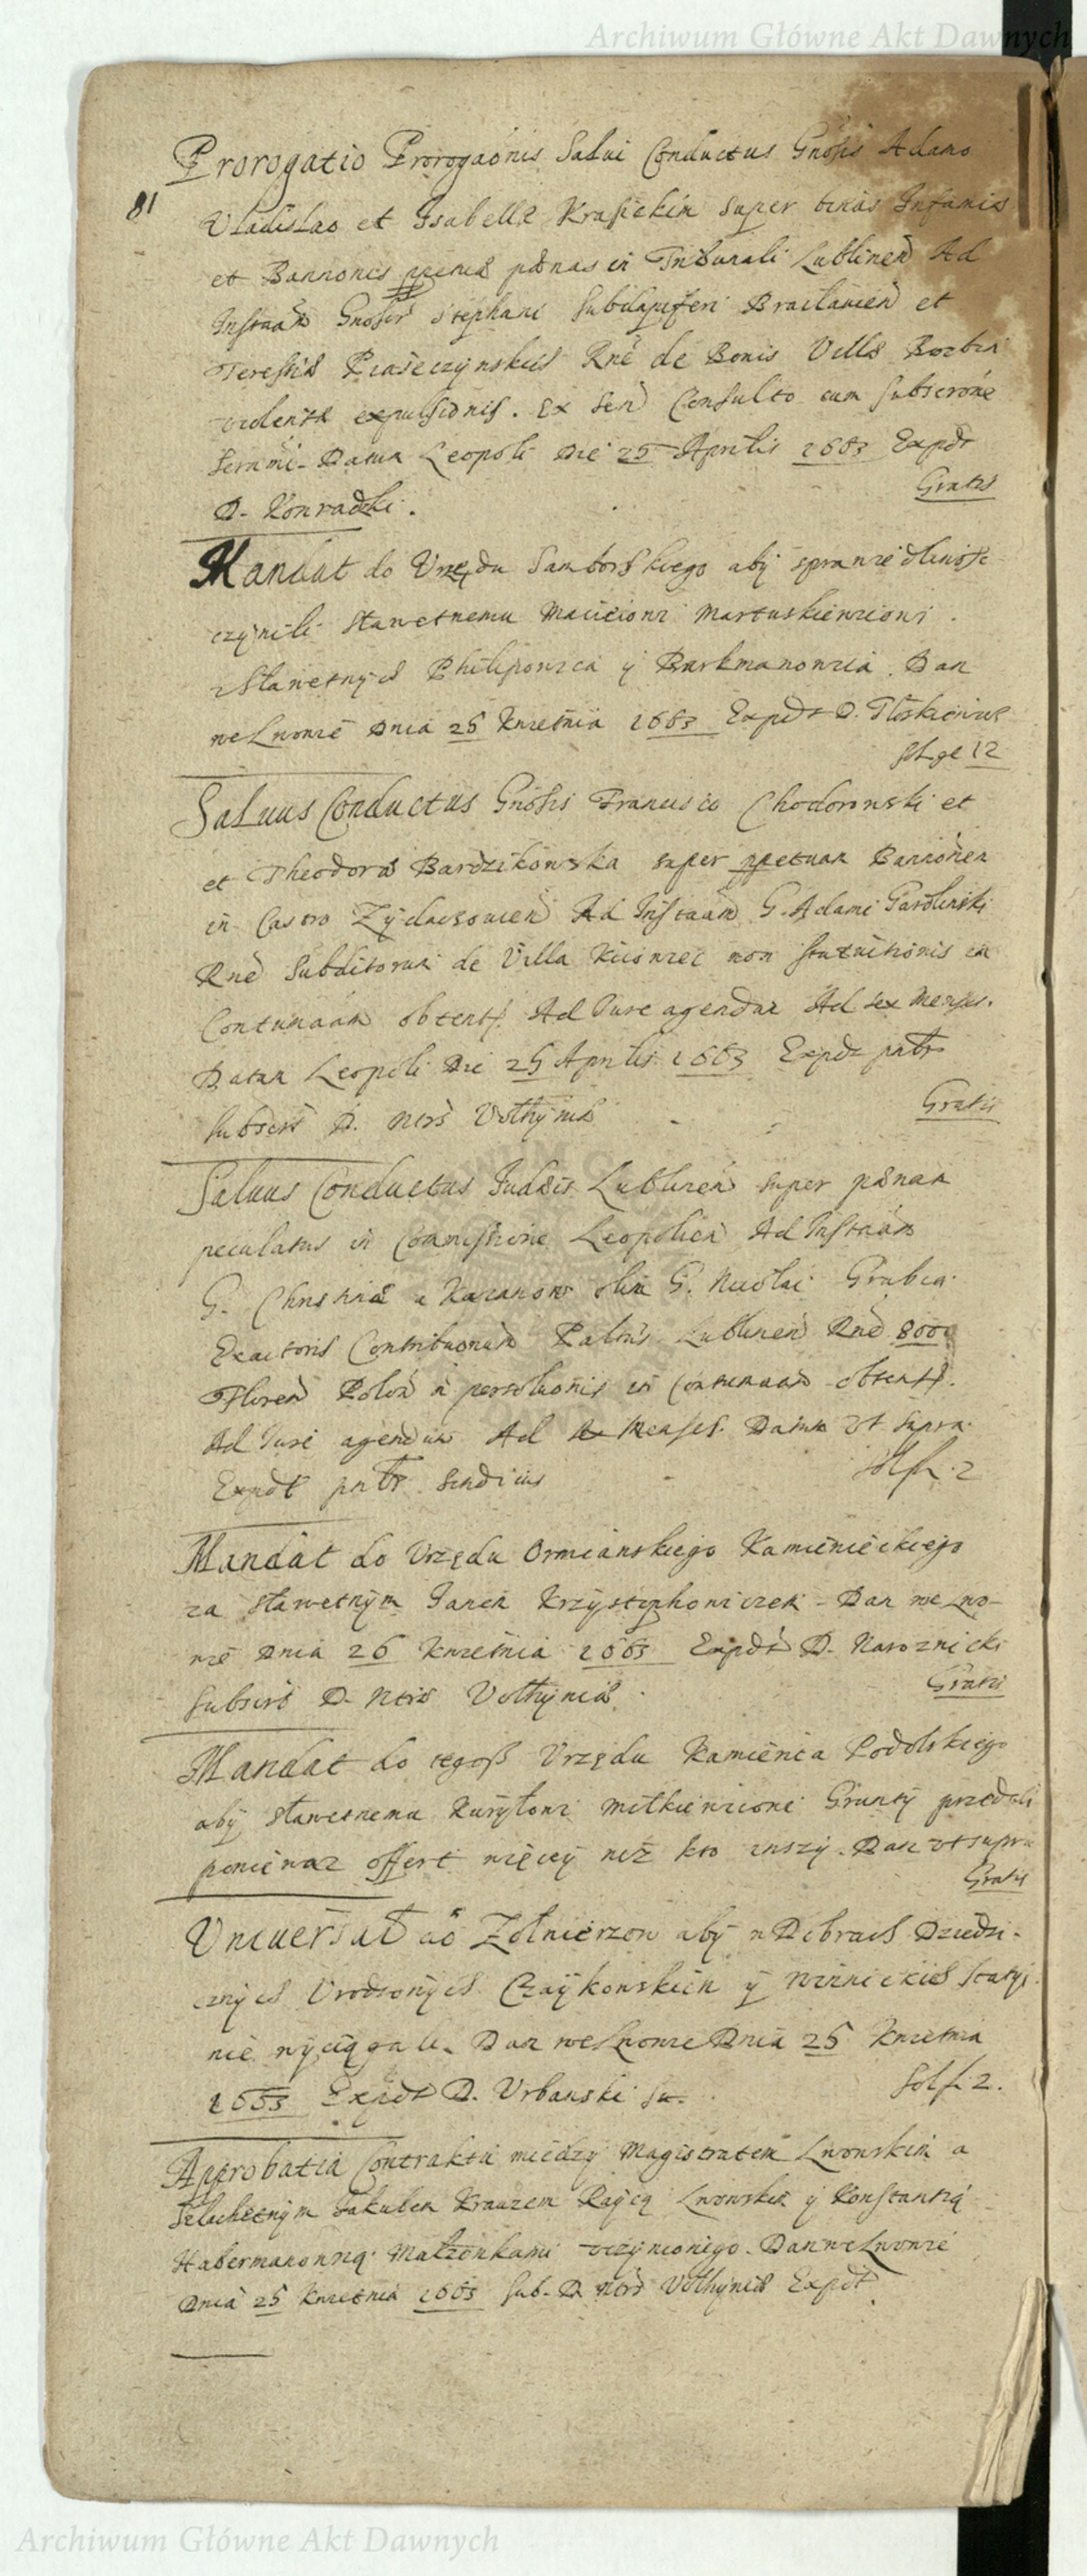 Archiwum Główne Akt Dawnych
Prorogatio Prorogaonis Salui Conductus Gnosis Adamo
81
Vladislao et Isabella Krasickin super binas Infamia
et Bannonis paenas in Tribunali Lublinen Ad
Instaan Gnosor Stephani Subdapiferi Braclauien et
Teressia Piaseczynskich Rne de Bonis Villa
violenta expulsionis. Ex Sen Consulto cum Subscrone
Serenmi. Datum Leopoli Die 25 Aprilis 1663 Expdt
Gratis
D. Konradzki.
Mandat do Vrzędu Samborskiego aby sprawiedliwosc
czynili Sławetnemu Macieiowi Martuskiewiczowi
z Sławetnych Philipowica y Burkmanowica. Dan
we Lwowie Dnia 26 Kwietnia 1663 Expdt D.
12
Saluus Conductus Gnosis Francisco Chodorowski et
et Theodora Bardzikowska super ppetuam Bannonem
in Castro Zydaczouien Ad Instaan G. Adami Garlinski
Rne Subditorum de Villa non statuitionis in
Contumaam obtent. Ad Iure agendum Ad sex Menses.
Datum Leopoli Die 25 Aprilis 1663 Expdt
Gratis
Subscrt D. Ntrs Volhynia
Saluus Conductus Iudaeis Lublinen super paenam
peculatus in Commissione Leopolien Ad Instaan
G. Christina a Kazanow olim G. Nicolai Grabia
Exactoris Contributionum Palatus Lublinen Rne 8000
Floren Polon n persolutionis in Contumaam obtent.
Ad Iure agendum Ad Menses. Datum Vt supra.
2
Expdt
Mandat do Vrzędu Ormianskiego Kamienieckiego
za sławetnym Janem Krzysztophowiczem. Dan we Lwo-
wie Dnia 26 Kwietnia 1663 Expdt D. Naroznicki
Gratis
Subscrt D. Ntrs Volhynia
Mandat do tegosz Vrzędu Kamienca Podolskiego
aby sławetnemu Kuryłowi Mitkiewiczowi Grunty przedali
poniewaz offert więcy niz kto inszy. Dan vt supra
Gratis
Vniuersał do Zołnierzow aby w Dobrach Dziedzi-
cznych Vrodzonych Czaykowskich y Winnickich Stacyi
nie wyciągali. Dan we Lwowie Dnia 25 Kwietnia
2.
1663 Expdt D. Vrbanski
Approbatia Contraktu miedzy Magistratem Lwowskim a
Szlachetnym Jakubem Krauzem Raycą Lwowskim y Konstantią
Habermanowną Małzonkami vczynionego. Dan we Lwowie
Dnia 25 Kwietnia 1663 Sub. D. Ntrs Volhynia Expdt
Archiwum Główne Akt Dawnych